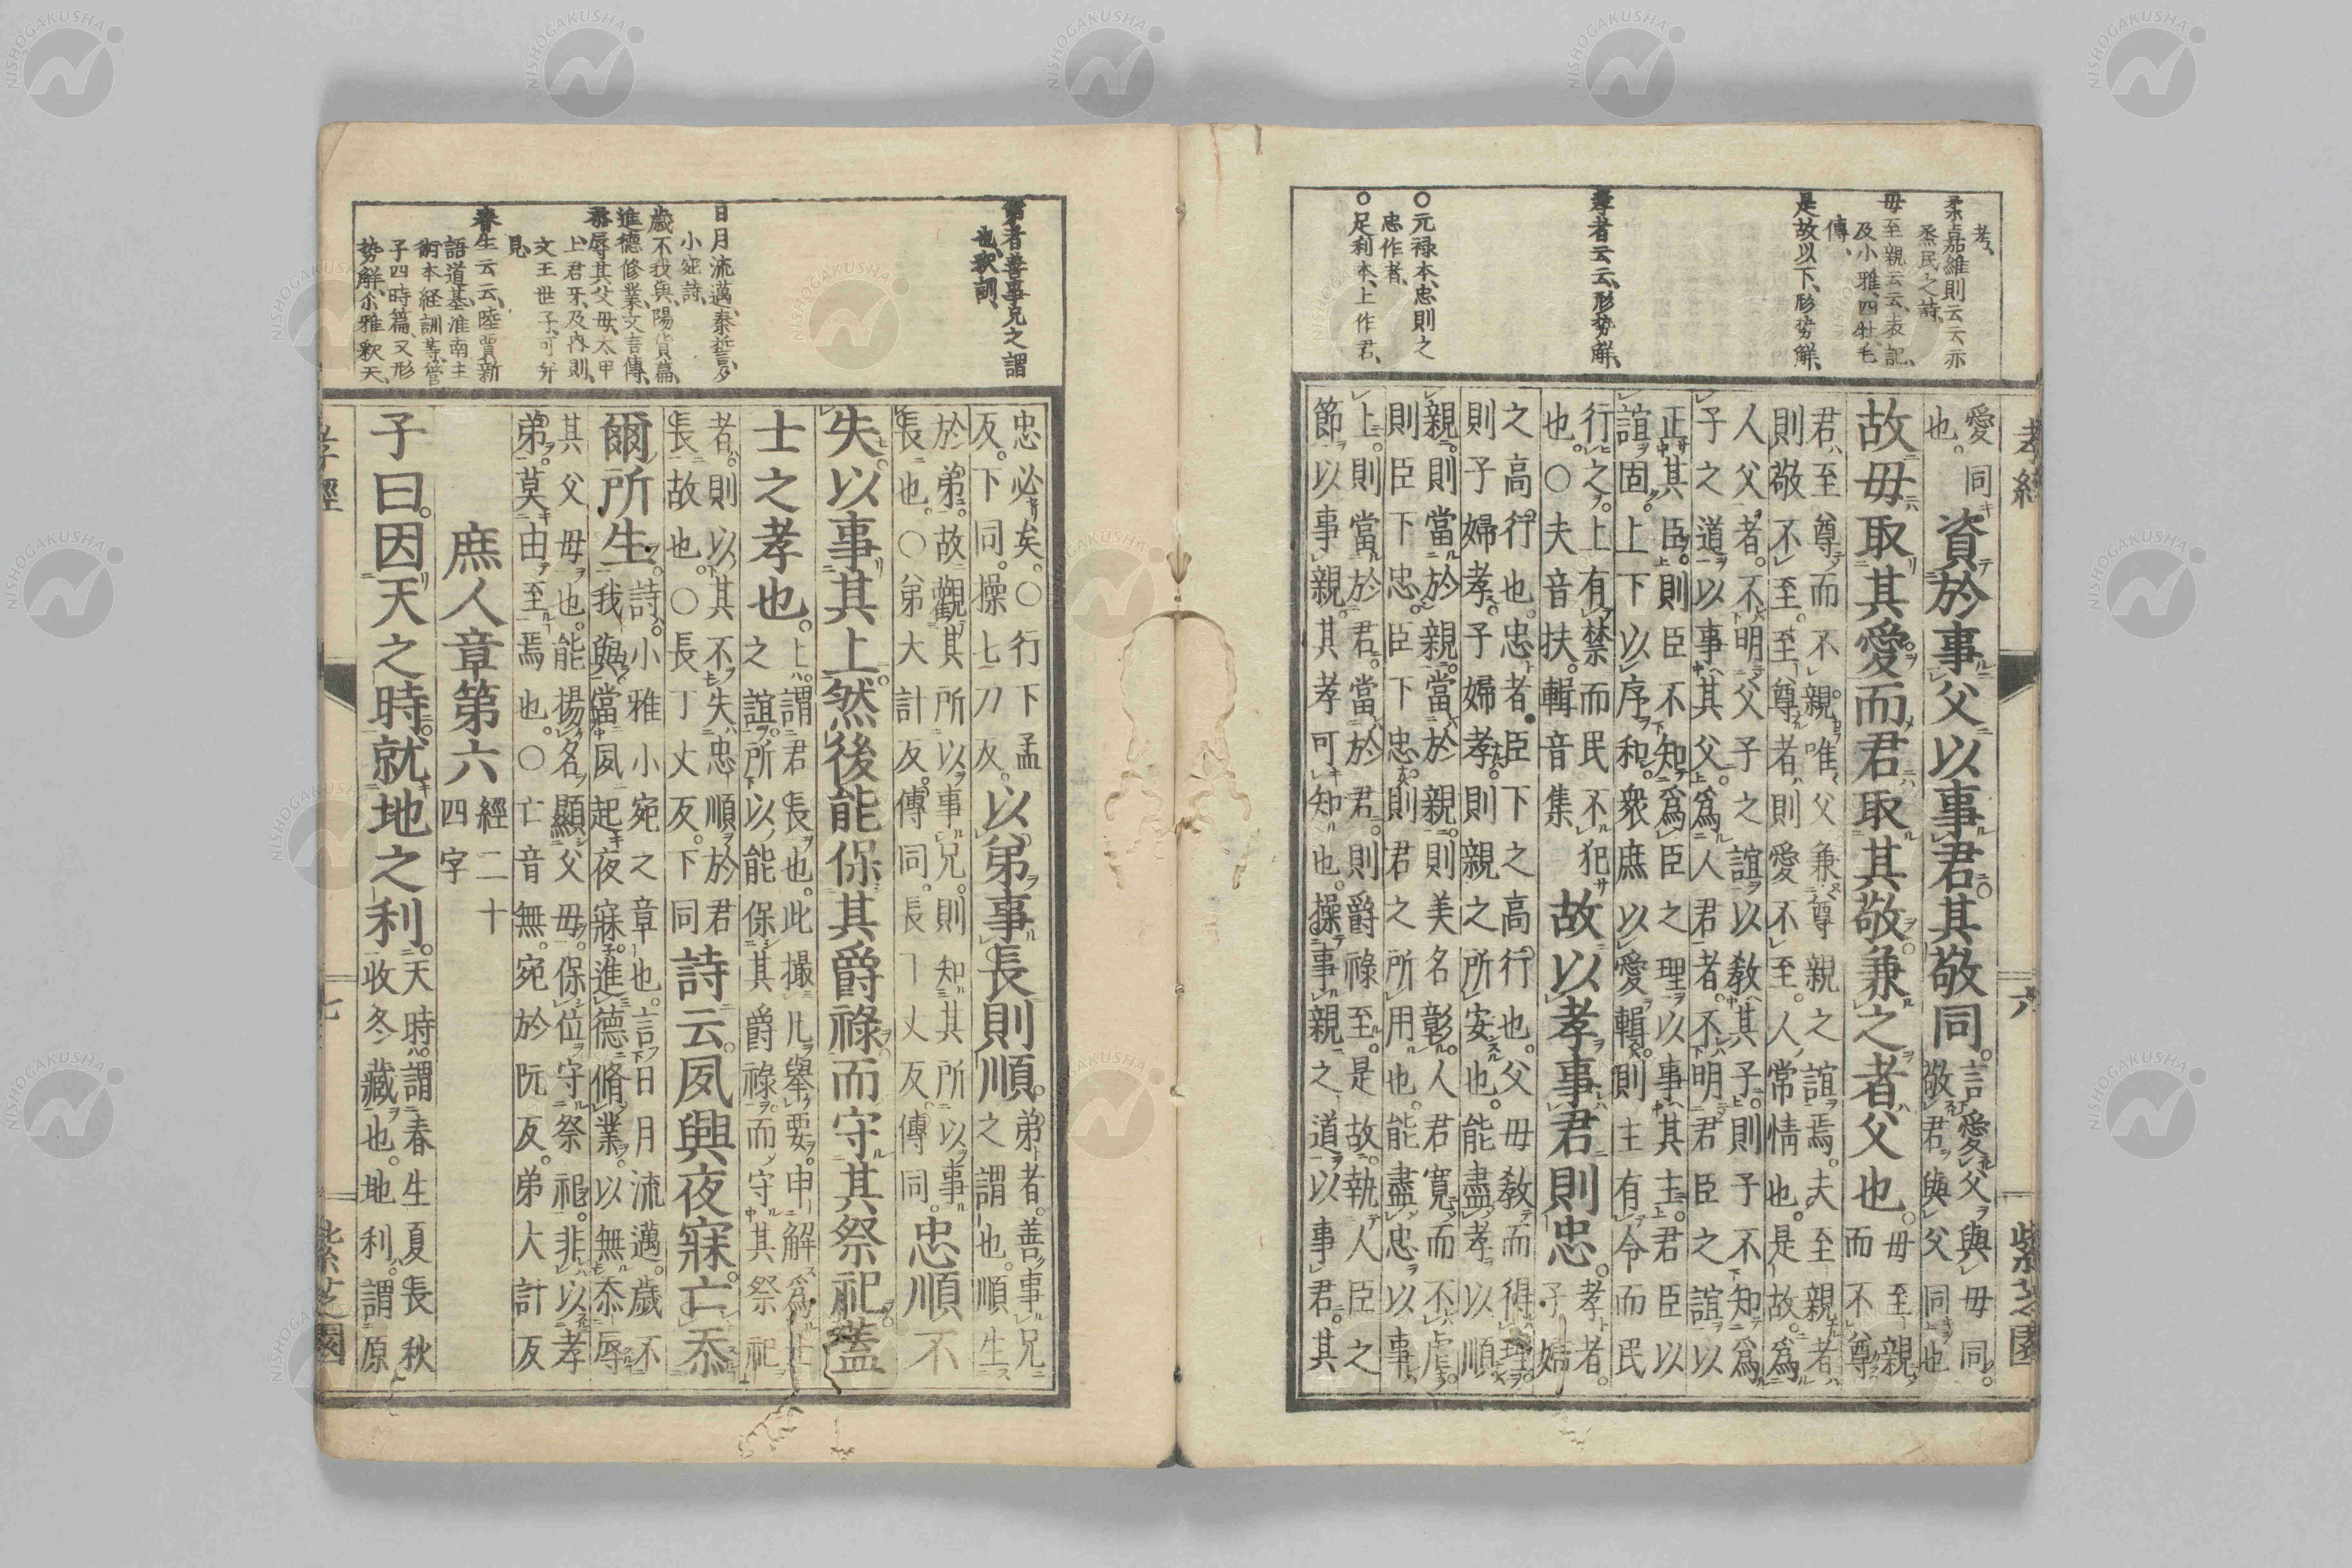 考、
柔嘉維則云云亦
烝民之詩、
毋至親云云、表記、
及小雅、四牡、毛
傳、
是故以下、形勢解、
孝者云云、形勢解、
○元禄本、忠則之
忠作者、
○足利本、上作君、
孝經 六 紫芝園
愛同
也。
資於事父以事君。其敬同。
言愛父與毋同。
敬君與父同也
故毋取其愛而君取其敬兼之者父也。
毋至親
而不尊
君至尊而不親。唯父兼尊親之誼焉。夫至親者
則敬不至。至尊者則愛不至。人常情也。是故爲
人父者。不明父子之誼以教其子。則子不知爲
子之道以事其父。爲人君者。不明君臣之誼以
正其臣。則臣不知爲臣之理以事其主。君臣以
誼固。上下以序和。衆庶以愛輯。則主有令而民
行之。上有禁而民不犯
也。○夫音扶。輯音集
故以孝事君則忠。
孝者。
子婦
之高行也。忠者。臣下之高行也。父毋教而得理。
則子婦孝。子婦孝。則親之所安也。能盡孝以順
親。則當於親。當於親。則美名彰。人君寬而不虐。
則臣下忠。臣下忠。則君之所用也。能盡忠以事
上。則當於君。當於君。則爵祿至。是故執人臣之
節以事親。其孝可知也。操事親之道以事君。其
弟者善事兄之謂
也、歌訓、
日月流邁、秦誓、
小宛詩、
歲不我與、陽貨篇、
進德修業、文言傳、
忝辱其父毋、太甲
上、君牙、及內則、
文王世子、可幷
見、
春生云云、陸賈新
語道基、淮南主
術本經訓等、管
子四時篇、又形
勢解、尒雅釈天、
忠必矣。○行下孟
反。下同。操七刀反。
以弟事長則順。
弟者。善事兄
之謂也。順生
於弟。故觀其所以事兄。則知其所以事
長也。○弟大計反。傳同。長丁丈反。傳同。
忠順不
失。以事其上。然後能保其爵祿而守其祭祀。蓋
士之孝也。
上。謂君長也。此撮凡舉要。申解爲士
之誼。所以能保其爵祿。而守其祭祀
者。則以其不失忠順於君
長故也。○長丁丈反。下同
詩云。夙興夜寐。亡忝
爾所生。
詩。小雅小宛之章也。言日月流邁。歲不
我與。當夙起夜寐。進德脩業。以無忝辱
其父毋也。能揚名顯父毋。保位守祭祀。非以孝
弟。莫由至焉也。○亡音無。宛於阮反。弟大計反
庶人章第六
經二十
四字
子曰。因天之時。就地之利。
天時。謂春生夏長秋
收冬藏也。地利。謂原
孝經 七 紫芝園
NISHOGAKUSHA